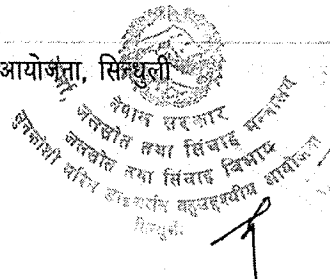 आयोजना, सिन्धुली
नेपाल सरकार
जलस्रोत तथा सिंचाइ मन्त्रालय
जलस्रोत तथा सिंचाइ विभाग
सुनकोशी मरिन डाइभर्सन बहुउद्देश्यीय आयोजना
सिन्धुली